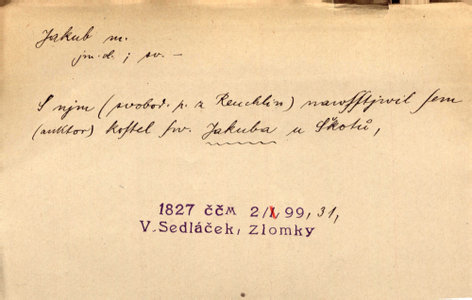 Jakub m.
jm. d.; sv. –
S njm (svobod. p. z Reuchlin) nawsstjwil sem
(auktor) kostel sw. Jakuba u Skotů,
1827 ččm 2/I, 99, 31,
V. Sedláček, Zlomky